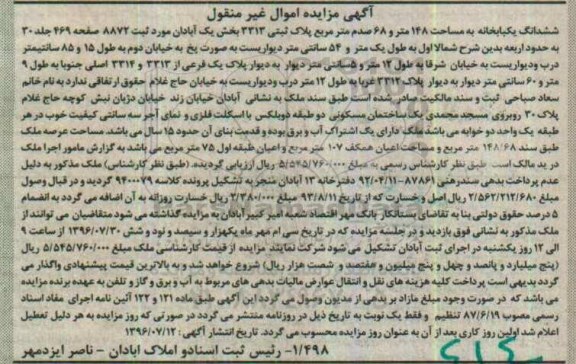 آگهی مزایده اموال غیر منقول
ششدانگ یکبابخانه به مساحت ۱۴۸ متر و ۶۸ صدم متر مربع پلاک ثبتی ۳۳۱۳ بخش یک آبادان مورد ثبت ۸۸۷۲ صفحه ۴۶۹ جلد ۳۰
به حدود اربعه بدین شرح شمالا اول به طول یک متر و ۵۴ سانتی متر دیواریست به صورت پخ به خیابان دوم به طول ۱۵ و ۸۵ سانتیمتر
درب ودیواریست به خیابان شرقا به طول ۱۲ متر و ۱۵ سانتی متر دیوار به دیوار پلاک یک فرعی از ۳۳۱۳ و ۳۳۱۴ اصلی جنوبا به طول ۹
متر و ۶۰ سانتی متر دیوار به دیوار پلاک ۳۳۱۲ غربا به طول ۱۲ متر درب ودیواریست به خیابان حاج غلام حقوق ارتفاقی ندارد به نام خانم
سعاد صباحی ثبت و سند مالکیت صادر شده است طبق سند ملک به نشانی آبادان خیابان زند خیابان دژبان نبش کوچه حاج غلام
پلاک ۳۰ روبروی مسجد محمدی یک ساختمان مسکونی دو طبقه دوبلکس با اسکلت فلزی و نمای آجر سه سانتی کیفیت خوب در هر
طبقه یک واحد دو خوابه می باشد ملک دارای یک اشتراک آب و برق بوده و قدمت بنای آن حدود ۱۵ سال می باشد. مساحت عرصه ملک
طبق سند ۱۴۸/۶۸ متر مربع و مساحت اعیان همکف ۱۰۷ متر مربع و اعیان طبقه اول ۷۵ متر مربع می باشد به گزارش مامور اجرا ملک
در ید مالک است طبق نظر کارشناس رسمی به مبلغ ۵/۵۴۵/۷۶۰/۰۰۰ ریال ارزیابی گردیده. (طبق نظر کارشناس) ملک مذکور به دلیل
عدم پرداخت بدهی سندرهنی ۸۷۸۶۱-۹۲/۰۴/۱۱ دفترخانه ۱۳ آبادان منتجر به تشکیل پرونده کلاسه ۹۴۰۰۰۷۹ گردید و در قبال وصول
مبلغ ۲/۵۶۲/۲۱۲/۶۸۰ ریال اصل و خسارت که از تاریخ ۹۳/۸/۱۱ مبلغ ۲/۳۸۰/۰۰۰ ریال خسارت روزانه به آن اضافه می گردد به انضمام
۵ درصد حقوق دولتی بنا به تقاضای بستانکار بانک مهر اقتصاد شعبه امیر کبیر آبادان به مزایده گذاشته می شود متقاضیان می توانند از
ملک مذکور به نشانی فوق بازدید و در جلسه مزایده که در تاریخ سی ام مهر ماه یکهزار و سیصد و نود و شش ۱۳۹۶/۰۷/۳۰ از ساعت ۹
الی ۱۲ روز یکشنبه در اجرای ثبت آبادان تشکیل می شود شرکت نمایند مزایده از قیمت کارشناسی ملک مبلغ ۵/۵۴۵/۷۶۰/۰۰۰ ریال
(پنج میلیارد و پانصد و چهل و پنج میلیون و هفتصد و شصت هزار ریال) شروع خواهد شد و به بالاترین قیمت پیشنهادی واگذار می
گردد بدیهی است پرداخت کلیه هزینه های نقل و انتقال عوارض مالیات بدهی های مربوط به آب و برق و گاز و تلفن به عهده برنده مزایده
می باشد که در صورت وجود مبلغ مازاد بر بدهی از مدیون وصول می گردد این آگهی طبق ماده ۱۲۱ و ۱۲۲ آئین نامه اجرای مفاد اسناد
رسمی مصوب ۸۷/۶/۱۹ تنظیم و فقط یک نوبت به تاریخ ذیل در روزنامه منتشر می گردد در صورتی که روز مزایده به هر دلیل تعطیل
اعلام شد اولین روز کاری بعد از آن به عنوان روز مزایده محسوب می گردد. تاریخ انتشار آگهی : ۱۳۹۶/۰۷/۱۲
۱/۴۹۸- رئیس ثبت اسنادو املاک ابادان - ناصر ایزدمهر